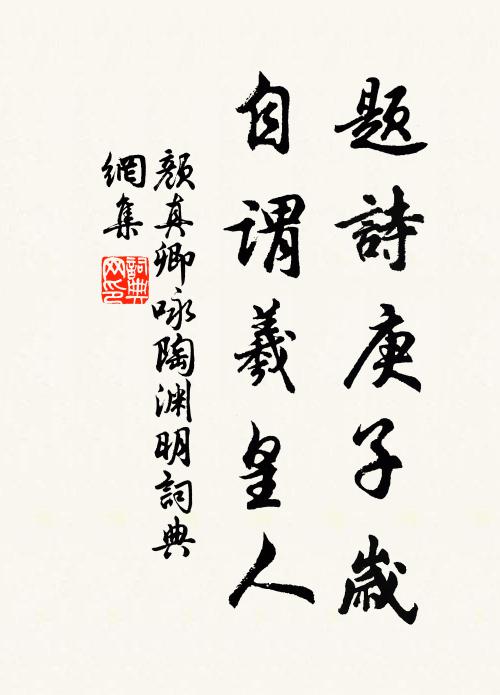 題詩庚子歲
自謂羲皇人
顏真卿咏陶淵明詞典
網集
詞典
网印